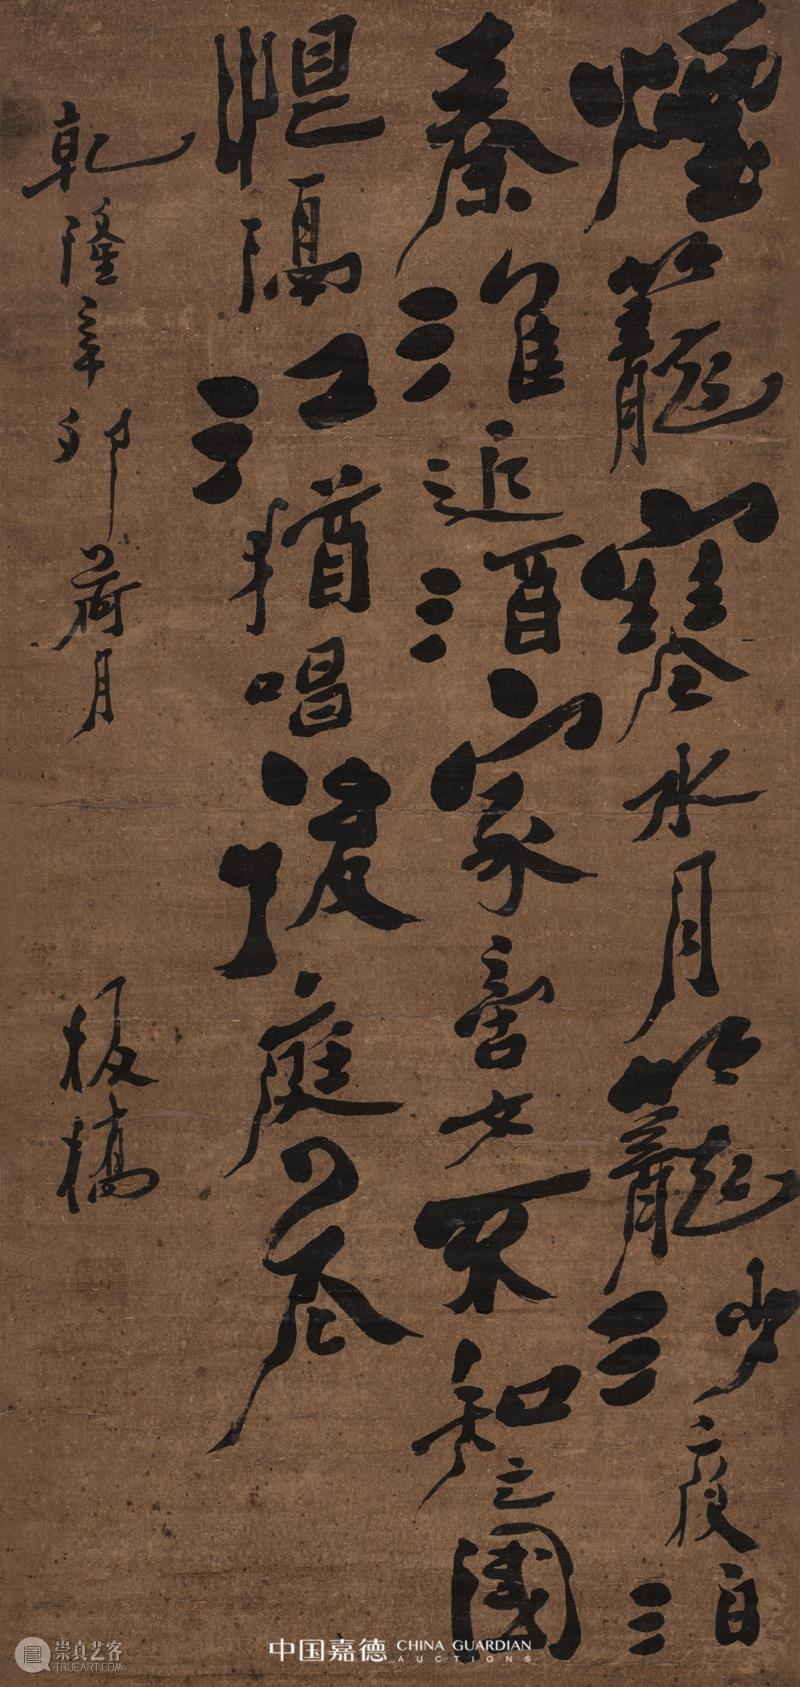 煙籠寒水月籠沙夜泊
秦淮近酒家商女不知亡國
恨隔江猶唱後庭花
乾隆辛卯荷月
板橋
中国嘉德 CHINA GUARDIAN
AUCTIONS
崇真艺客
TRUEART.COM